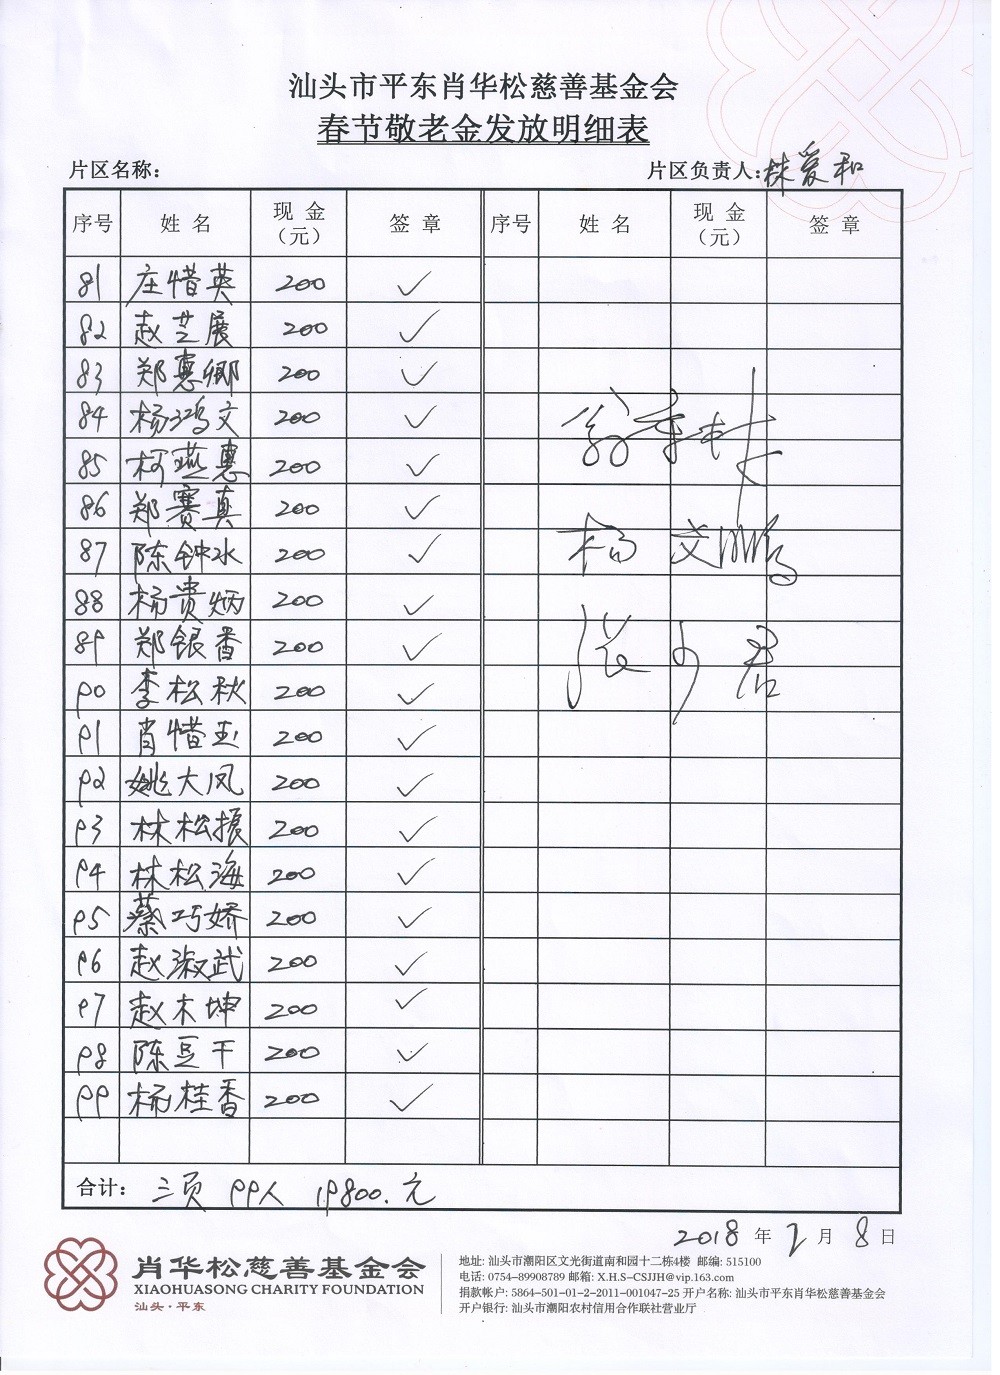 汕头市平东肖华松慈善基金会
春节敬老金发放明细表
片区名称: 片区负责人:林爱和
序号 姓名 现金(元) 签章 序号 姓名 现金(元) 签章
81 庄惜英 200 ✓
82 赵芝展 200 ✓
83 郑惠卿 200 ✓
84 杨鸿文 200 ✓
85 柯燕惠 200 ✓
86 郑赛真 200 ✓
87 陈钟水 200 ✓
88 杨贵炳 200 ✓
89 郑银香 200 ✓
90 李松秋 200 ✓
91 肖惜玉 200 ✓
92 姚大凤 200 ✓
93 林松振 200 ✓
94 林松海 200 ✓
95 蔡巧娇 200 ✓
96 赵淑武 200 ✓
97 赵木坤 200 ✓
98 陈豆干 200 ✓
99 杨桂香 200 ✓
杨文鹏
张少君
合计: 三页 99人 19800.元
2018 年 2 月 8 日
肖华松慈善基金会
XIAOHUASONG CHARITY FOUNDATION
汕头·平东
地址: 汕头市潮阳区文光街道南和园十二栋4楼 邮编: 515100
电话: 0754-89908789 邮箱: X.H.S-CSJJH@vip.163.com
捐款帐户: 5864-501-01-2-2011-001047-25 开户名称: 汕头市平东肖华松慈善基金会
开户银行: 汕头市潮阳农村信用合作联社营业厅